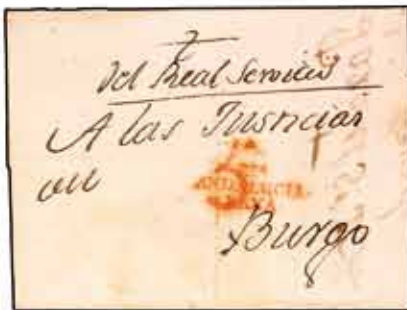 Del Real Servicio
A las Justicias
en
ANDALUCIA
BAXA
Burgo